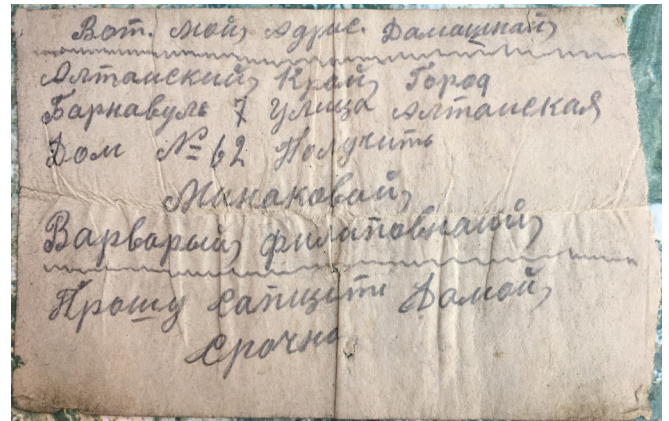 Вот. мой, адрис. Дамашнай,
Алтаиский, Край, Город
Барнавуль 7 улица Алтаиская
Дом № 62 Получить
Минаковай,
Варварый, филиповнаий,
Прошу сапщити Дамой,
срочно,